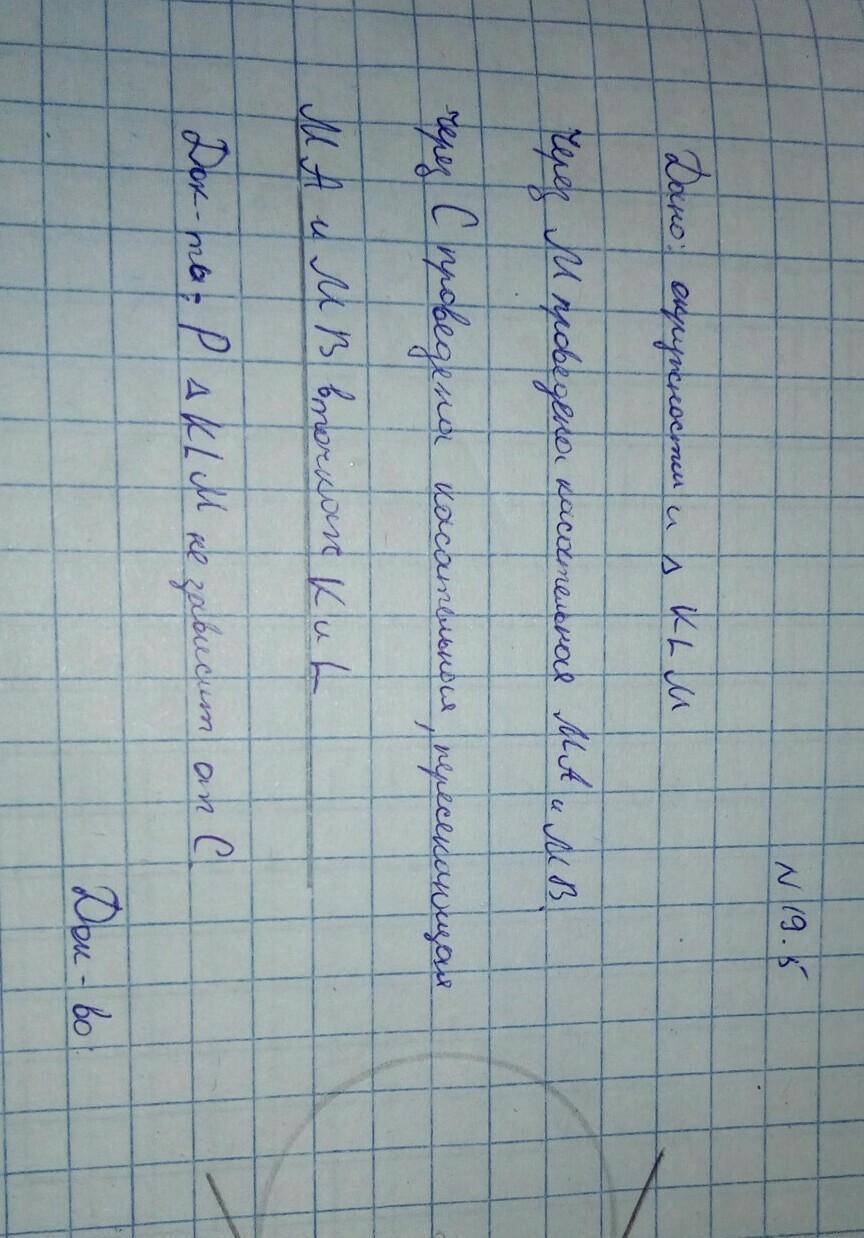 N 19.5
Дано: окружности и △ KLM
Через M проведена касательная MA и MB.
через C проведена касательная, пересекающая
MA и MB в точках K и L
Док-ть: P △ KLM не зависит от C.
Док-во: